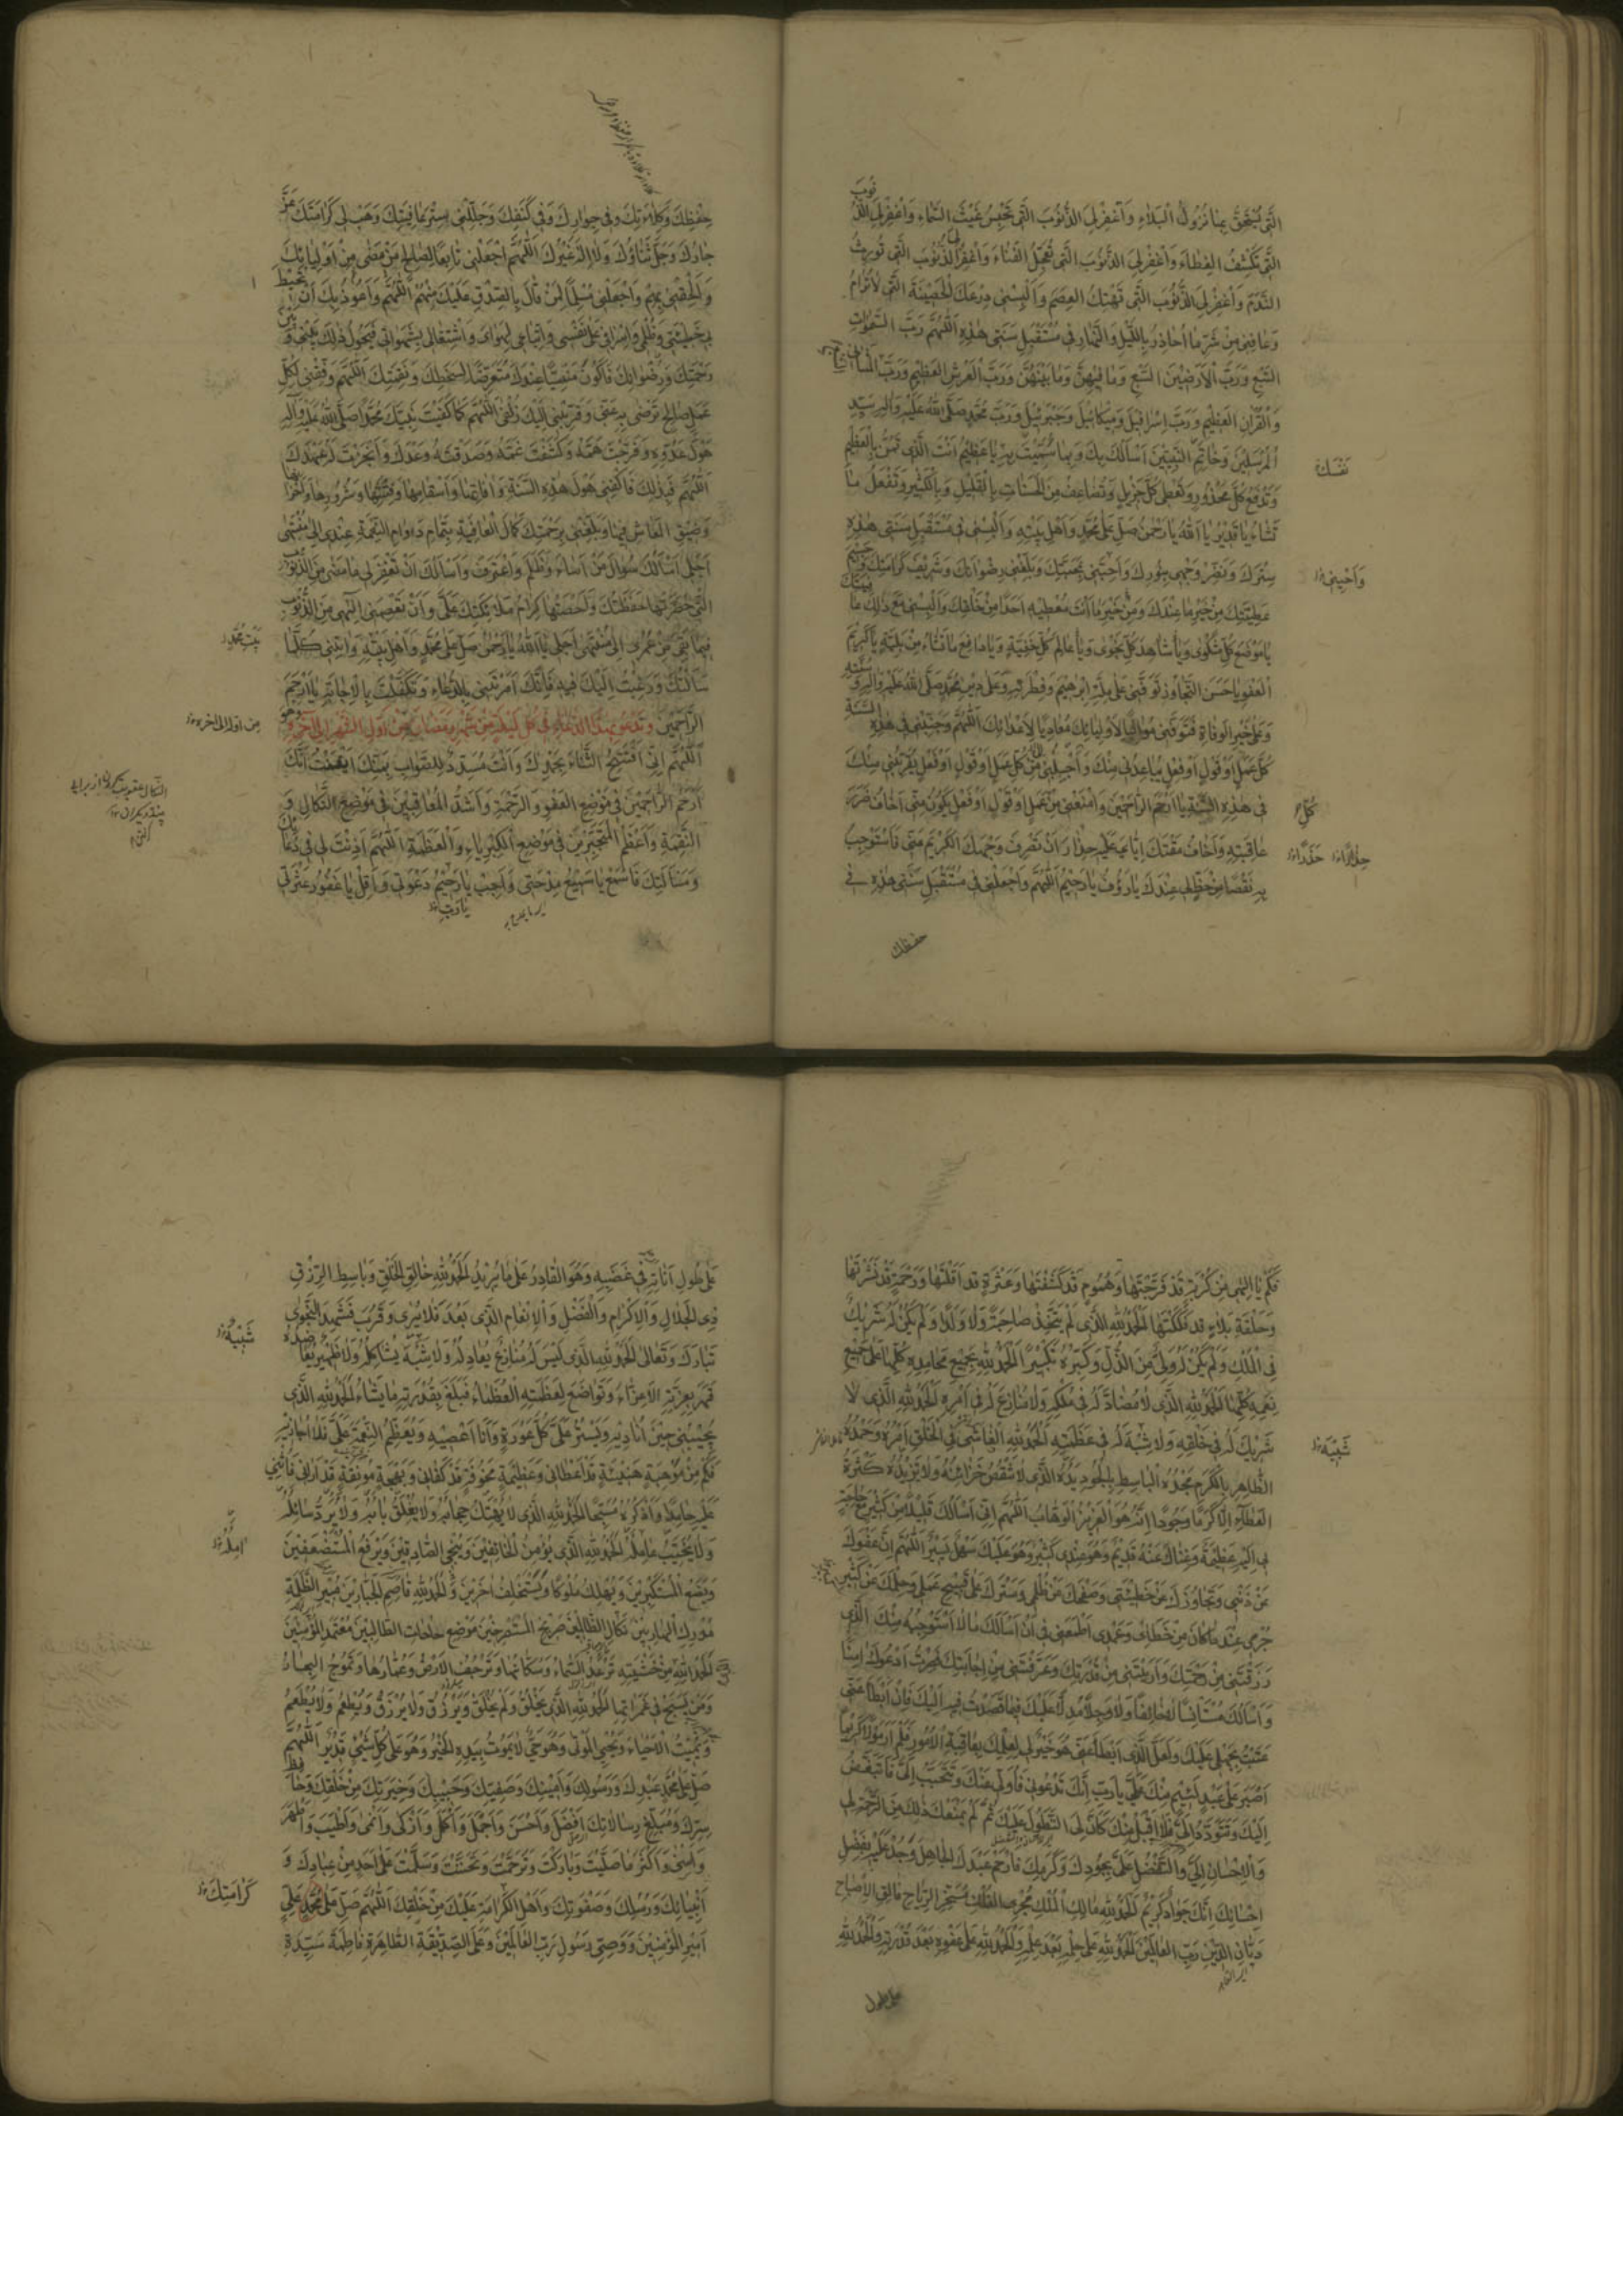 الَّتِي يُسْتَحَقُّ بِهَا نُزُولُ الْبَلَاءِ وَاغْفِرْ لِيَ الذُّنُوبَ الَّتِي تَحْبِسُ غَيْثَ السَّمَاءِ وَاغْفِرْ لِيَ الذُّنُوبَ
الَّتِي تَكْشِفُ الْغِطَاءَ وَاغْفِرْ لِيَ الذُّنُوبَ الَّتِي تُعَجِّلُ الْفَنَاءَ وَاغْفِرْ لِيَ الذُّنُوبَ الَّتِي تُورِثُ
النَّدَمَ وَاغْفِرْ لِيَ الذُّنُوبَ الَّتِي تَهْتِكُ الْعِصَمَ وَأَلْبِسْنِي دِرْعَكَ الْحَصِينَةَ الَّتِي لَا تُرَامُ
وَعَافِنِي مِنْ شَرِّ مَا أُحَاذِرُ بِاللَّيْلِ وَالنَّهَارِ فِي مُسْتَقْبَلِ سَنَتِي هَذِهِ اللَّهُمَّ رَبَّ السَّمَوَاتِ
السَّبْعِ وَرَبَّ الْأَرَضِينَ السَّبْعِ وَمَا فِيهِنَّ وَمَا بَيْنَهُنَّ وَرَبَّ الْعَرْشِ الْعَظِيمِ وَرَبَّ الْمَثَانِي
وَالْقُرْآنِ الْعَظِيمِ وَرَبَّ إِسْرَافِيلَ وَمِيكَائِيلَ وَجَبْرَئِيلَ وَرَبَّ مُحَمَّدٍ صَلَّى اللهُ عَلَيْهِ وَآلِهِ سَيِّدِ
الْمُرْسَلِينَ وَخَاتَمِ النَّبِيِّينَ أَسْأَلُكَ بِكَ وَبِمَا سَمَّيْتَ بِهِ يَا عَظِيمُ أَنْتَ الَّذِي تَمُنُّ بِالْعَظِيمِ
نَفْسَكَ
وَتَدْفَعُ كُلَّ مَحْذُورٍ وَتُعْطِي كُلَّ جَزِيلٍ وَتُضَاعِفُ مِنَ الْحَسَنَاتِ بِالْقَلِيلِ وَبِالْكَثِيرِ وَتَفْعَلُ مَا
تَشَاءُ يَا قَدِيرُ يَا اللهُ يَا رَحْمَنُ صَلِّ عَلَى مُحَمَّدٍ وَأَهْلِ بَيْتِهِ وَأَلْبِسْنِي فِي مُسْتَقْبَلِ سَنَتِي هَذِهِ
سِتْرَكَ وَنَضِّرْ وَجْهِي بِنُورِكَ وَأَحِبَّنِي بِمَحَبَّتِكَ وَبَلِّغْنِي رِضْوَانَكَ وَشَرِيفَ كَرَامَتِكَ وَجَسِيمَ
وَأَحْيِنِي
عَطِيَّتِكَ مِنْ خَيْرِ مَا عِنْدَكَ وَمِنْ خَيْرِ مَا أَنْتَ مُعْطِيهِ أَحَدًا مِنْ خَلْقِكَ وَأَلْبِسْنِي مَعَ ذَلِكَ عَافِيَتَكَ
يَا مَوْضِعَ كُلِّ شَكْوَى وَيَا شَاهِدَ كُلِّ نَجْوَى وَيَا عَالِمَ كُلِّ خَفِيَّةٍ وَيَا دَافِعَ مَا تَشَاءُ مِنْ بَلِيَّةٍ يَا كَرِيمَ
الْعَفْوِ يَا حَسَنَ التَّجَاوُزِ تَوَفَّنِي عَلَى مِلَّةِ إِبْرَاهِيمَ وَفِطْرَتِهِ وَعَلَى دِينِ مُحَمَّدٍ صَلَّى اللهُ عَلَيْهِ وَآلِهِ وَسُنَّتِهِ
وَعَلَى خَيْرِ الْوَفَاةِ فَتَوَفَّنِي مُوَالِيًا لِأَوْلِيَائِكَ مُعَادِيًا لِأَعْدَائِكَ اللَّهُمَّ وَجَنِّبْنِي فِي هَذِهِ السَّنَةِ
كُلَّ عَمَلٍ أَوْ قَوْلٍ أَوْ فِعْلٍ يُبَاعِدُنِي مِنْكَ وَاجْلِبْنِي إِلَى كُلِّ عَمَلٍ أَوْ قَوْلٍ أَوْ فِعْلٍ يُقَرِّبُنِي مِنْكَ
فِي هَذِهِ السَّنَةِ يَا أَرْحَمَ الرَّاحِمِينَ وَامْنَعْنِي مِنْ عَمَلٍ أَوْ قَوْلٍ أَوْ فِعْلٍ يَكُونُ مِنِّي أَخَافُ ضَرَرَ
كُلِّ
عَاقِبَتِهِ وَأَخَافُ مَقْتَكَ إِيَّايَ عَلَيْهِ حِذَارَ أَنْ تَصْرِفَ وَجْهَكَ الْكَرِيمَ مِنِّي فَأَسْتَوْجِبَ
حَذَرًا
بِهِ نَقْصًا مِنْ حَظٍّ لِي عِنْدَكَ يَا رَؤُفُ يَا رَحِيمُ اللَّهُمَّ وَاجْعَلْنِي فِي مُسْتَقْبَلِ سَنَتِي هَذِهِ فِي
حفظك
حِفْظِكَ وَكَلَاءَتِكَ وَفِي جِوَارِكَ وَفِي كَنَفِكَ وَجَلِّلْنِي سِتْرَ عَافِيَتِكَ وَهَبْ لِي كَرَامَتَكَ عَزَّ
جَارُكَ وَجَلَّ ثَنَاؤُكَ وَلَا إِلَهَ غَيْرُكَ اللَّهُمَّ اجْعَلْنِي تَابِعًا لِصَالِحِ مَنْ مَضَى مِنْ أَوْلِيَائِكَ
وَأَلْحِقْنِي بِهِمْ وَاجْعَلْنِي مُسَلِّمًا لِمَنْ قَالَ بِالصِّدْقِ عَلَيْكَ مِنْهُمْ اللَّهُمَّ وَأَعُوذُ بِكَ أَنْ تُحِيطَ
بِي خَطِيئَتِي وَظُلْمِي وَإِسْرَافِي عَلَى نَفْسِي وَاتِّبَاعِي لِهَوَايَ وَاشْتِغَالِي بِشَهَوَاتِي فَيَحُولُ ذَلِكَ بَيْنِي وَبَيْنَ
رَحْمَتِكَ وَرِضْوَانِكَ فَأَكُونَ مَنْسِيًّا عِنْدَكَ مُتَعَرِّضًا لِسَخَطِكَ وَنَقِمَتِكَ اللَّهُمَّ وَفِّقْنِي لِكُلِّ
عَمَلٍ صَالِحٍ تَرْضَى بِهِ عَنِّي وَقَرِّبْنِي إِلَيْكَ زُلْفَى اللَّهُمَّ كَمَا كَفَيْتَ نَبِيَّكَ مُحَمَّدًا صَلَّى اللهُ عَلَيْهِ وَآلِهِ
هَوْلَ عَدُوِّهِ وَفَرَّجْتَ هَمَّهُ وَكَشَفْتَ غَمَّهُ وَصَدَقْتَهُ وَعْدَكَ وَأَنْجَزْتَ لَهُ عَهْدَكَ
اللَّهُمَّ فَبِذَلِكَ فَاكْفِنِي هَوْلَ هَذِهِ السَّنَةِ وَآفَاتِهَا وَأَسْقَامِهَا وَفِتْنَتَهَا وَشُرُورِهَا وَأَحْزَانِهَا
وَضِيقِ الْمَعَاشِ فِيهَا وَبَلِّغْنِي بِرَحْمَتِكَ كَمَالَ الْعَافِيَةِ بِتَمَامِ دَوَامِ النِّعْمَةِ عِنْدِي إِلَى مُنْتَهَى
أَجَلِي أَسْأَلُكَ سُؤَالَ مَنْ أَسَاءَ وَظَلَمَ وَاعْتَرَفَ وَأَسْأَلُكَ أَنْ تَغْفِرَ لِي مَا مَضَى مِنَ الذُّنُوبِ
الَّتِي حَصَرَتْهَا حَفَظَتُكَ وَأَحْصَتْهَا كِرَامُ مَلَائِكَتِكَ عَلَيَّ وَأَنْ تَعْصِمَنِي إِلَهِي مِنَ الذُّنُوبِ
فِيمَا بَقِيَ مِنْ عُمْرِي إِلَى مُنْتَهَى أَجَلِي يَا اللهُ يَا رَحْمَنُ صَلِّ عَلَى مُحَمَّدٍ وَأَهْلِ بَيْتِهِ وَآتِنِي كُلَّمَا
بَيْتِ مُحَمَّدٍ
سَأَلْتُكَ وَرَغِبْتُ إِلَيْكَ فِيهِ فَإِنَّكَ أَمَرْتَنِي بِالدُّعَاءِ وَتَكَفَّلْتَ بِالْإِجَابَةِ يَا أَرْحَمَ
الرَّاحِمِينَ وَتَدْعُو بِهَذَا الدُّعَاءِ فِي كُلِّ لَيْلَةٍ مِنْ شَهْرِ رَمَضَانَ مِنْ أَوَّلِ الشَّهْرِ إِلَى آخِرِهِ وَهُوَ
من اوله الى اخره
اللَّهُمَّ إِنِّي أَفْتَتِحُ الثَّنَاءَ بِحَمْدِكَ وَأَنْتَ مُسَدِّدٌ لِلصَّوَابِ بِمَنِّكَ أَيْقَنْتُ أَنَّكَ
أَرْحَمُ الرَّاحِمِينَ فِي مَوْضِعِ الْعَفْوِ وَالرَّحْمَةِ وَأَشَدُّ الْمُعَاقِبِينَ فِي مَوْضِعِ النَّكَالِ وَ
النَّقِمَةِ وَأَعْظَمُ الْمُتَجَبِّرِينَ فِي مَوْضِعِ الْكِبْرِيَاءِ وَالْعَظَمَةِ اللَّهُمَّ أَذِنْتَ لِي فِي دُعَائِكَ
وَمَسْأَلَتِكَ فَاسْمَعْ يَا سَمِيعُ مِدْحَتِي وَأَجِبْ يَا رَحِيمُ دَعْوَتِي وَأَقِلْ يَا غَفُورُ عَثْرَتِي
فَكَمْ يَا إِلَهِي مِنْ كُرْبَةٍ قَدْ فَرَّجْتَهَا وَهُمُومٍ قَدْ كَشَفْتَهَا وَعَثْرَةٍ قَدْ أَقَلْتَهَا وَرَحْمَةٍ قَدْ نَشَرْتَهَا
وَحَلْقَةِ بَلَاءٍ قَدْ فَكَكْتَهَا الْحَمْدُ لِلَّهِ الَّذِي لَمْ يَتَّخِذْ صَاحِبَةً وَلَا وَلَدًا وَلَمْ يَكُنْ لَهُ شَرِيكٌ
فِي الْمُلْكِ وَلَمْ يَكُنْ لَهُ وَلِيٌّ مِنَ الذُّلِّ وَكَبِّرْهُ تَكْبِيرًا الْحَمْدُ لِلَّهِ بِجَمِيعِ مَحَامِدِهِ كُلِّهَا عَلَى جَمِيعِ
نِعَمِهِ كُلِّهَا الْحَمْدُ لِلَّهِ الَّذِي لَا مُضَادَّ لَهُ فِي مُلْكِهِ وَلَا مُنَازِعَ لَهُ فِي أَمْرِهِ الْحَمْدُ لِلَّهِ الَّذِي لَا
شَرِيكَ لَهُ فِي خَلْقِهِ وَلَا شِبْهَ لَهُ فِي عَظَمَتِهِ الْحَمْدُ لِلَّهِ الْفَاشِي فِي الْخَلْقِ أَمْرُهُ وَحَمْدُهُ
شَبِيهَ
الظَّاهِرِ بِالْكَرَمِ مَجْدُهُ الْبَاسِطِ بِالْجُودِ يَدَهُ الَّذِي لَا تَنْقُصُ خَزَائِنُهُ وَلَا تَزِيدُهُ كَثْرَةُ
الْعَطَاءِ إِلَّا كَرَمًا وَجُودًا إِنَّهُ هُوَ الْعَزِيزُ الْوَهَّابُ اللَّهُمَّ إِنِّي أَسْأَلُكَ قَلِيلًا مِنْ كَثِيرٍ مَعَ حَاجَةٍ
بِي إِلَيْهِ عَظِيمَةٍ وَغِنَاكَ عَنْهُ قَدِيمٌ وَهُوَ عِنْدِي كَثِيرٌ وَهُوَ عَلَيْكَ سَهْلٌ يَسِيرٌ اللَّهُمَّ إِنَّ عَفْوَكَ
عَنْ ذَنْبِي وَتَجَاوُزَكَ عَنْ خَطِيئَتِي وَصَفْحَكَ عَنْ ظُلْمِي وَسَتْرَكَ عَلَى قَبِيحِ عَمَلِي وَحِلْمَكَ عَنْ كَثِيرِ
جُرْمِي عِنْدَ مَا كَانَ مِنْ خَطَائِي وَعَمْدِي أَطْمَعَنِي فِي أَنْ أَسْأَلَكَ مَا لَا أَسْتَوْجِبُهُ مِنْكَ الَّذِي
رَزَقْتَنِي مِنْ رَحْمَتِكَ وَأَرَيْتَنِي مِنْ قُدْرَتِكَ وَعَرَّفْتَنِي مِنْ إِجَابَتِكَ فَصِرْتُ أَدْعُوكَ آمِنًا
وَأَسْأَلُكَ مُسْتَأْنِسًا لَا خَائِفًا وَلَا وَجِلًا مُدِلًّا عَلَيْكَ فِيمَا قَصَدْتُ فِيهِ إِلَيْكَ فَإِنْ أَبْطَأَ عَنِّي
عَتَبْتُ بِجَهْلِي عَلَيْكَ وَلَعَلَّ الَّذِي أَبْطَأَ عَنِّي هُوَ خَيْرٌ لِي لِعِلْمِكَ بِعَاقِبَةِ الْأُمُورِ فَلَمْ أَرَ مَوْلًا كَرِيمًا
أَصْبَرَ عَلَى عَبْدٍ لَئِيمٍ مِنْكَ عَلَيَّ يَا رَبِّ إِنَّكَ تَدْعُونِي فَأُوَلِّي عَنْكَ وَتَتَحَبَّبُ إِلَيَّ فَأَتَبَغَّضُ
إِلَيْكَ وَتَتَوَدَّدُ إِلَيَّ فَلَا أَقْبَلُ مِنْكَ كَأَنَّ لِيَ التَّطَوُّلَ عَلَيْكَ ثُمَّ لَمْ يَمْنَعْكَ ذَلِكَ مِنَ الرَّحْمَةِ لِي
وَالْإِحْسَانِ إِلَيَّ وَالتَّفَضُّلِ عَلَيَّ بِجُودِكَ وَكَرَمِكَ فَارْحَمْ عَبْدَكَ الْجَاهِلَ وَجُدْ عَلَيْهِ بِفَضْلِ
إِحْسَانِكَ إِنَّكَ جَوَادٌ كَرِيمٌ الْحَمْدُ لِلَّهِ مَالِكِ الْمُلْكِ مُجْرِي الْفُلْكِ مُسَخِّرِ الرِّيَاحِ فَالِقِ الْإِصْبَاحِ
دَيَّانِ الدِّينِ رَبِّ الْعَالَمِينَ الْحَمْدُ لِلَّهِ عَلَى حِلْمِهِ بَعْدَ عِلْمِهِ وَالْحَمْدُ لِلَّهِ عَلَى عَفْوِهِ بَعْدَ قُدْرَتِهِ وَالْحَمْدُ لِلَّهِ
على طول
عَلَى طُولِ أَنَاتِهِ فِي غَضَبِهِ وَهُوَ الْقَادِرُ عَلَى مَا يُرِيدُ الْحَمْدُ لِلَّهِ خَالِقِ الْخَلْقِ وَبَاسِطِ الرِّزْقِ
ذِي الْجَلَالِ وَالْإِكْرَامِ وَالْفَضْلِ وَالْإِنْعَامِ الَّذِي بَعُدَ فَلَا يُرَى وَقَرُبَ فَشَهِدَ النَّجْوَى
تَبَارَكَ وَتَعَالَى الْحَمْدُ لِلَّهِ الَّذِي لَيْسَ لَهُ مُنَازِعٌ يُعَادِلُهُ وَلَا شِبْهٌ يُشَاكِلُهُ وَلَا ظَهِيرٌ يُعَاضِدُهُ
شَبِيهٌ
قَهَرَ بِعِزَّتِهِ الْأَعِزَّاءَ وَتَوَاضَعَ لِعَظَمَتِهِ الْعُظَمَاءُ فَبَلَغَ بِقُدْرَتِهِ مَا يَشَاءُ الْحَمْدُ لِلَّهِ الَّذِي
يُجِيبُنِي حِينَ أُنَادِيهِ وَيَسْتُرُ عَلَيَّ كُلَّ عَوْرَةٍ وَأَنَا أَعْصِيهِ وَيُعَظِّمُ النِّعْمَةَ عَلَيَّ فَلَا أُجَازِيهِ
فَكَمْ مِنْ مَوْهِبَةٍ هَنِيئَةٍ قَدْ أَعْطَانِي وَعَظِيمَةٍ مَخُوفَةٍ قَدْ كَفَانِي وَبَهْجَةٍ مُونِقَةٍ قَدْ أَرَانِي فَأُثْنِي
عَلَيْهِ حَامِدًا وَأَذْكُرُهُ مُسَبِّحًا الْحَمْدُ لِلَّهِ الَّذِي لَا يُهْتَكُ حِجَابُهُ وَلَا يُغْلَقُ بَابُهُ وَلَا يُرَدُّ سَائِلُهُ
وَلَا يُخَيَّبُ عَامِلُهُ الْحَمْدُ لِلَّهِ الَّذِي يُؤْمِنُ الْخَائِفِينَ وَيُنَجِّي الصَّادِقِينَ وَيَرْفَعُ الْمُسْتَضْعَفِينَ
آمِلُهُ
وَيَضَعُ الْمُسْتَكْبِرِينَ وَيُهْلِكُ مُلُوكًا وَيَسْتَخْلِفُ آخَرِينَ وَالْحَمْدُ لِلَّهِ قَاصِمِ الْجَبَّارِينَ مُبِيرِ الظَّلَمَةِ
مُدْرِكِ الْهَارِبِينَ نَكَالِ الظَّالِمِينَ صَرِيخِ الْمُسْتَصْرِخِينَ مَوْضِعِ حَاجَاتِ الطَّالِبِينَ مُعْتَمَدِ الْمُؤْمِنِينَ
الْحَمْدُ لِلَّهِ الَّذِي مِنْ خَشْيَتِهِ تَرْعُدُ السَّمَاءُ وَسُكَّانُهَا وَتَرْجُفُ الْأَرْضُ وَعُمَّارُهَا وَتَمُوجُ الْبِحَارُ
وَمَنْ يَسْبَحُ فِي غَمَرَاتِهَا الْحَمْدُ لِلَّهِ الَّذِي يَخْلُقُ وَلَمْ يُخْلَقْ وَيَرْزُقُ وَلَا يُرْزَقُ وَيُطْعِمُ وَلَا يُطْعَمُ
وَيُمِيتُ الْأَحْيَاءَ وَيُحْيِي الْمَوْتَى وَهُوَ حَيٌّ لَا يَمُوتُ بِيَدِهِ الْخَيْرُ وَهُوَ عَلَى كُلِّ شَيْءٍ قَدِيرٌ اللَّهُمَّ
صَلِّ عَلَى مُحَمَّدٍ عَبْدِكَ وَرَسُولِكَ وَأَمِينِكَ وَصَفِيِّكَ وَحَبِيبِكَ وَخِيَرَتِكَ مِنْ خَلْقِكَ وَحَافِظِ
سِرِّكَ وَمُبَلِّغِ رِسَالَاتِكَ أَفْضَلَ وَأَحْسَنَ وَأَجْمَلَ وَأَكْمَلَ وَأَزْكَى وَأَنْمَى وَأَطْيَبَ وَأَطْهَرَ
وَأَسْنَى وَأَكْثَرَ مَا صَلَّيْتَ وَبَارَكْتَ وَتَرَحَّمْتَ وَتَحَنَّنْتَ وَسَلَّمْتَ عَلَى أَحَدٍ مِنْ عِبَادِكَ وَ
أَنْبِيَائِكَ وَرُسُلِكَ وَصَفْوَتِكَ وَأَهْلِ الْكَرَامَةِ عَلَيْكَ مِنْ خَلْقِكَ اللَّهُمَّ صَلِّ عَلَى عَلِيٍّ
كَرَامَتِكَ
أَمِيرِ الْمُؤْمِنِينَ وَوَصِيِّ رَسُولِ رَبِّ الْعَالَمِينَ وَعَلَى الصِّدِّيقَةِ الطَّاهِرَةِ فَاطِمَةَ سَيِّدَةِ